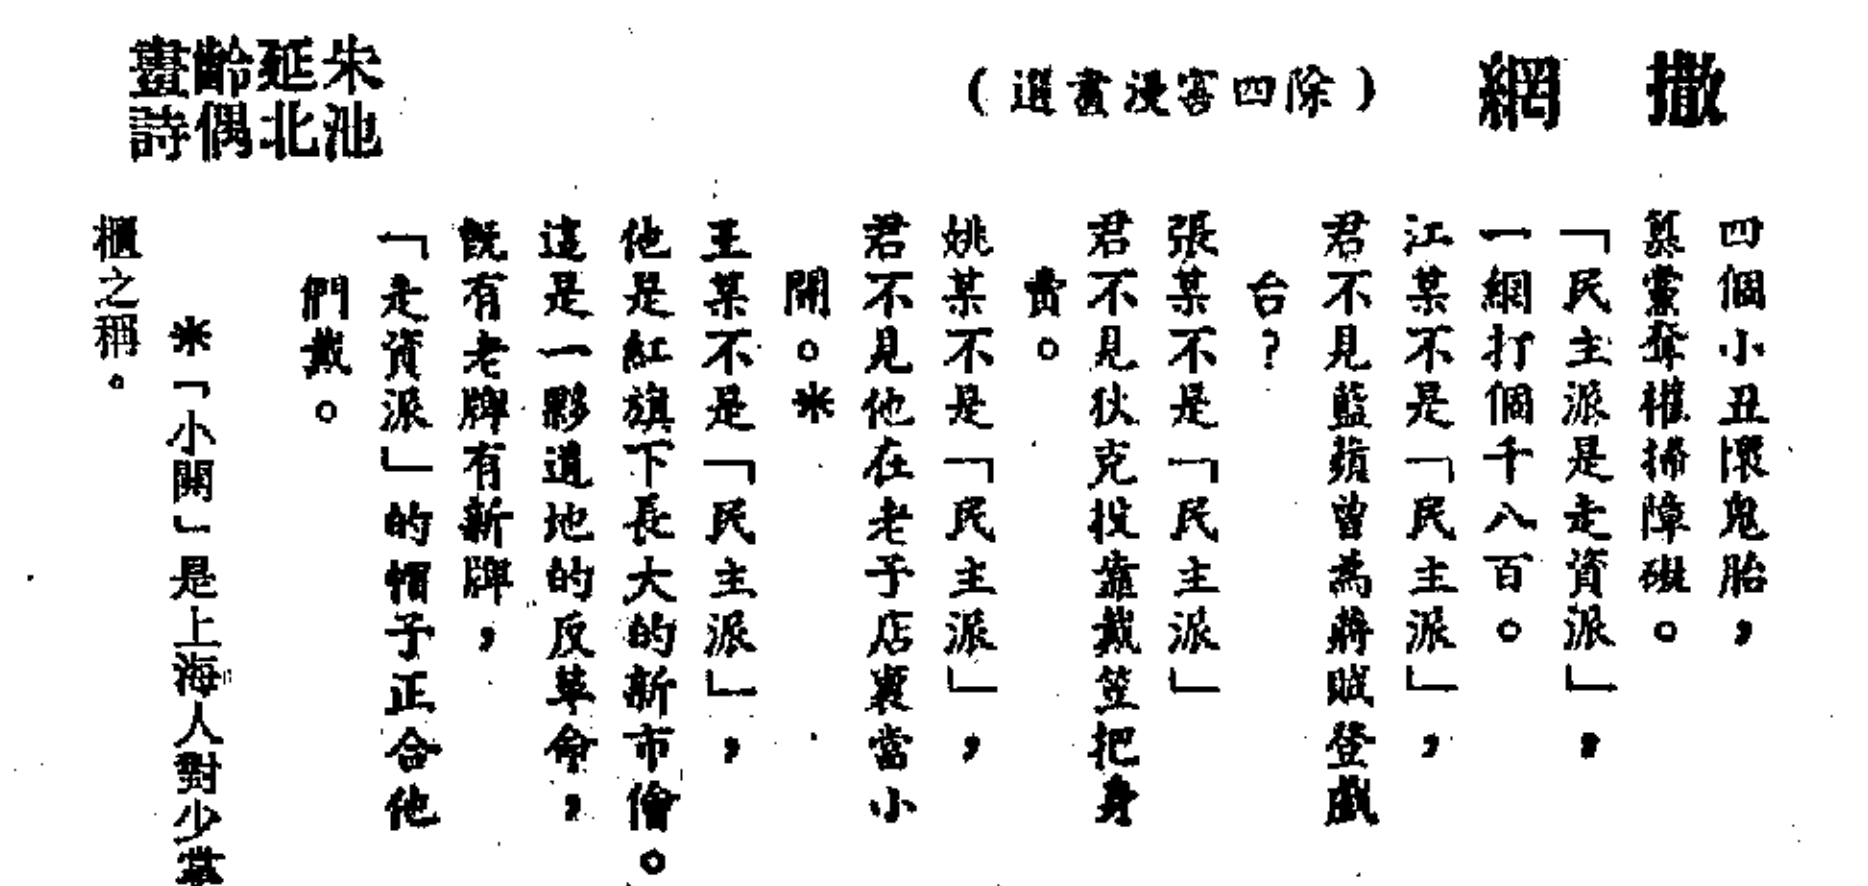 撒網
（除四害漫畫選）
朱延齡畫
池北偶詩
四個小丑懷鬼胎，
篡黨奪權掃障礙。
「民主派是走資派」，
一網打個千八百。
江某不是「民主派」，
君不見藍蘋曾為蔣賊登戲
台？
張某不是「民主派」
君不見狄克投靠戴笠把身
賣。
姚某不是「民主派」，
君不見他在老子店裏當小
開。＊
王某不是「民主派」，
他是紅旗下長大的新市儈。
這是一夥道地的反革命，
既有老牌有新牌，
「走資派」的帽子正合他
們戴。
＊「小開」是上海人對少掌
櫃之稱。